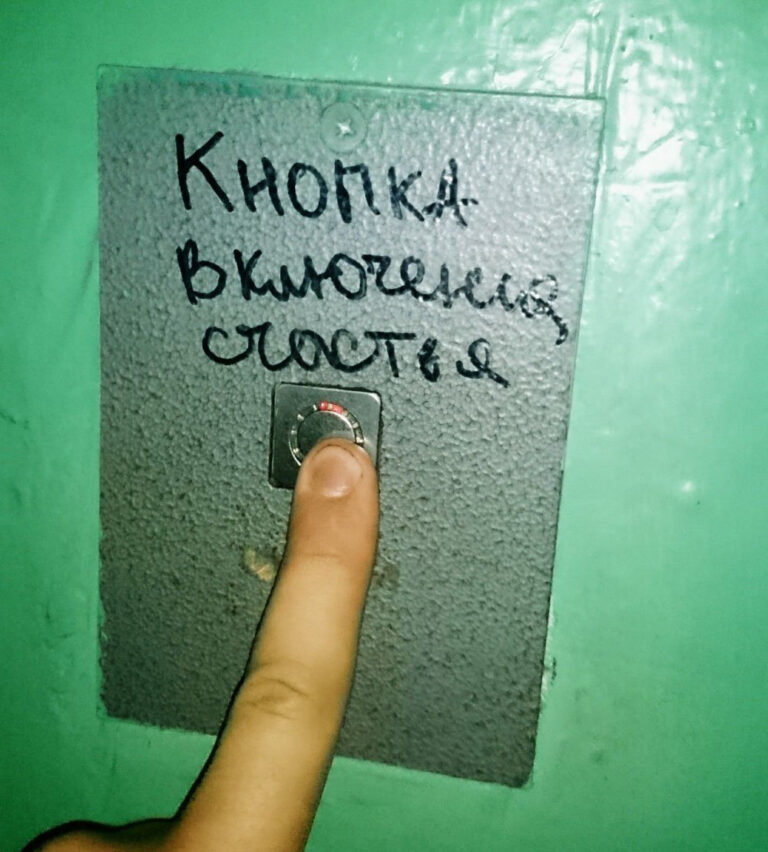 Кнопка
включения
счастья